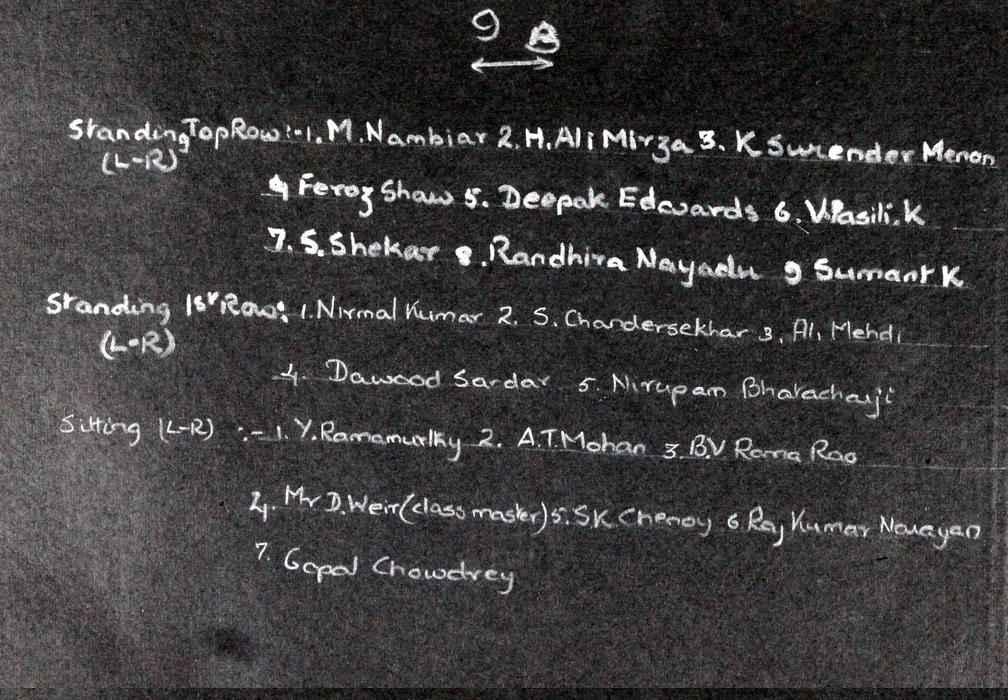 9 B
Standing Top Row :-1. M. Nambiar 2. H. Ali Mirza 3. K Surender Menon
(L-R)
4 Feroz Shaw 5. Deepak Edwards 6. V. Pasili. K
7. S. Shekar 8. Randhira Nayadu 9 Sumant K
Standing 1st Row: 1. Nirmal Kumar 2. S. Chandersekhar 3. Ali Mehdi
(L-R)
4. Dawood Sardar 5. Nirupam Bhatacharji
Sitting (L-R) :- 1. Y. Ramamurthy 2. A.T. Mohan 3 B.V Rama Rao
4. Mr D. Weir (class master) 5. SK Chenoy 6 Raj Kumar Narayan
7. Gopal Chowdrey